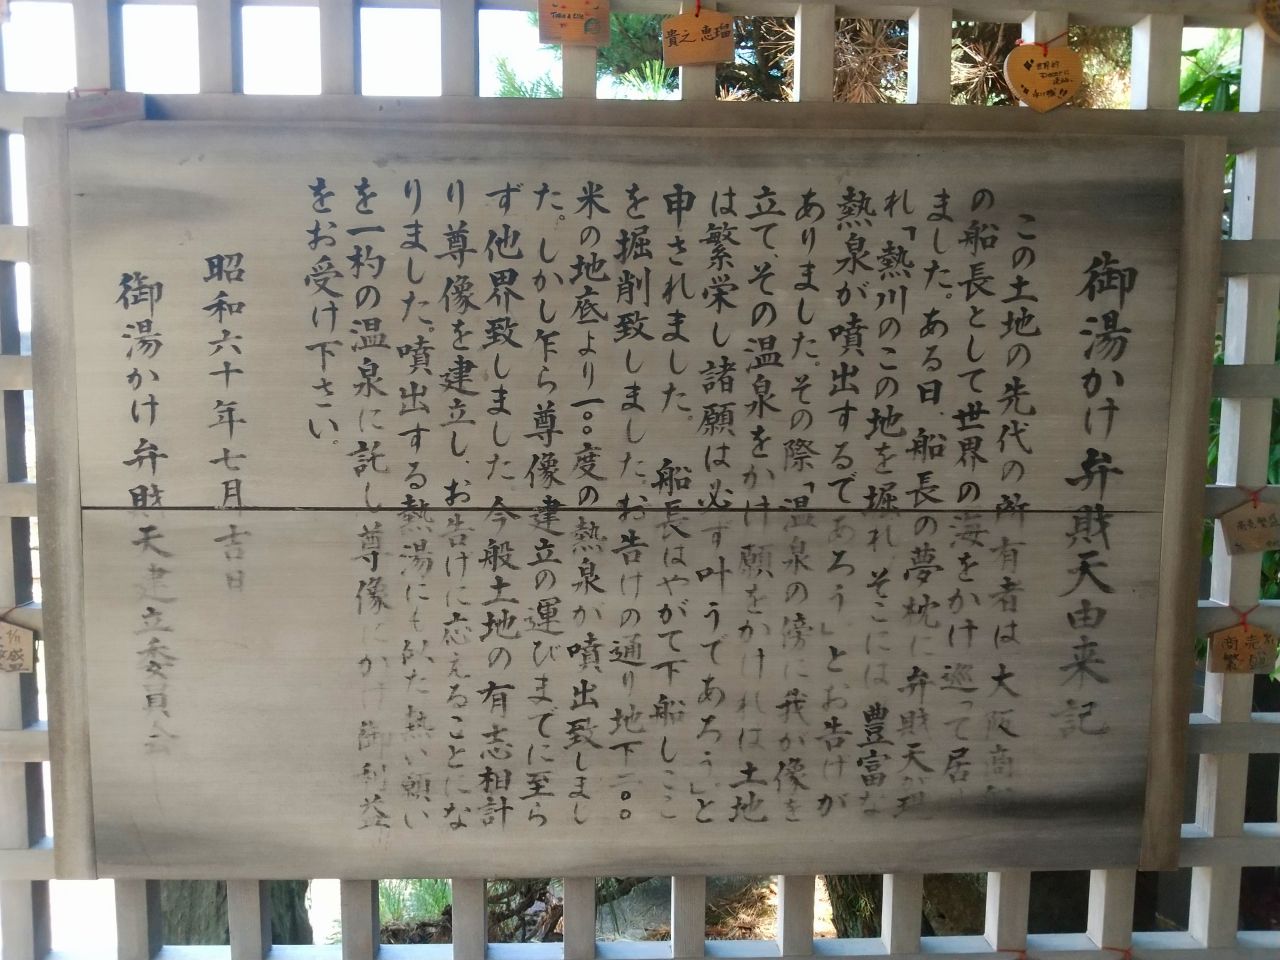 御湯かけ弁財天由来記
この土地の先代の所有者は大阪商船
の船長として世界の海をかけ巡って居
ました。ある日、船長の夢枕に弁財天が現
れ「熱川のこの地を掘れ、そこには豊富な
熱泉が噴出するであろう」とお告げが
ありました。その際「温泉の傍に我が像を
立て、その温泉をかけ願をかければ土地
は繁栄し諸願は必ず叶うであろう」と
申されました。船長はやがて下船しここ
を掘削致しましたお告げの通り地下二〇〇
米の地底より一〇〇度の熱泉が噴出致しまし
た。しかし乍ら尊像建立の運びまでに至ら
ず他界致しました。今般土地の有志相計
り尊像を建立し、お告げに応えることにな
りました。噴出する熱湯にも似た熱い願い
を一杓の温泉に託し尊像にかけ御利益
をお受け下さい。
昭和六十年七月吉日
御湯かけ弁財天建立委員会
貴之 恵瑠
商売繁盛